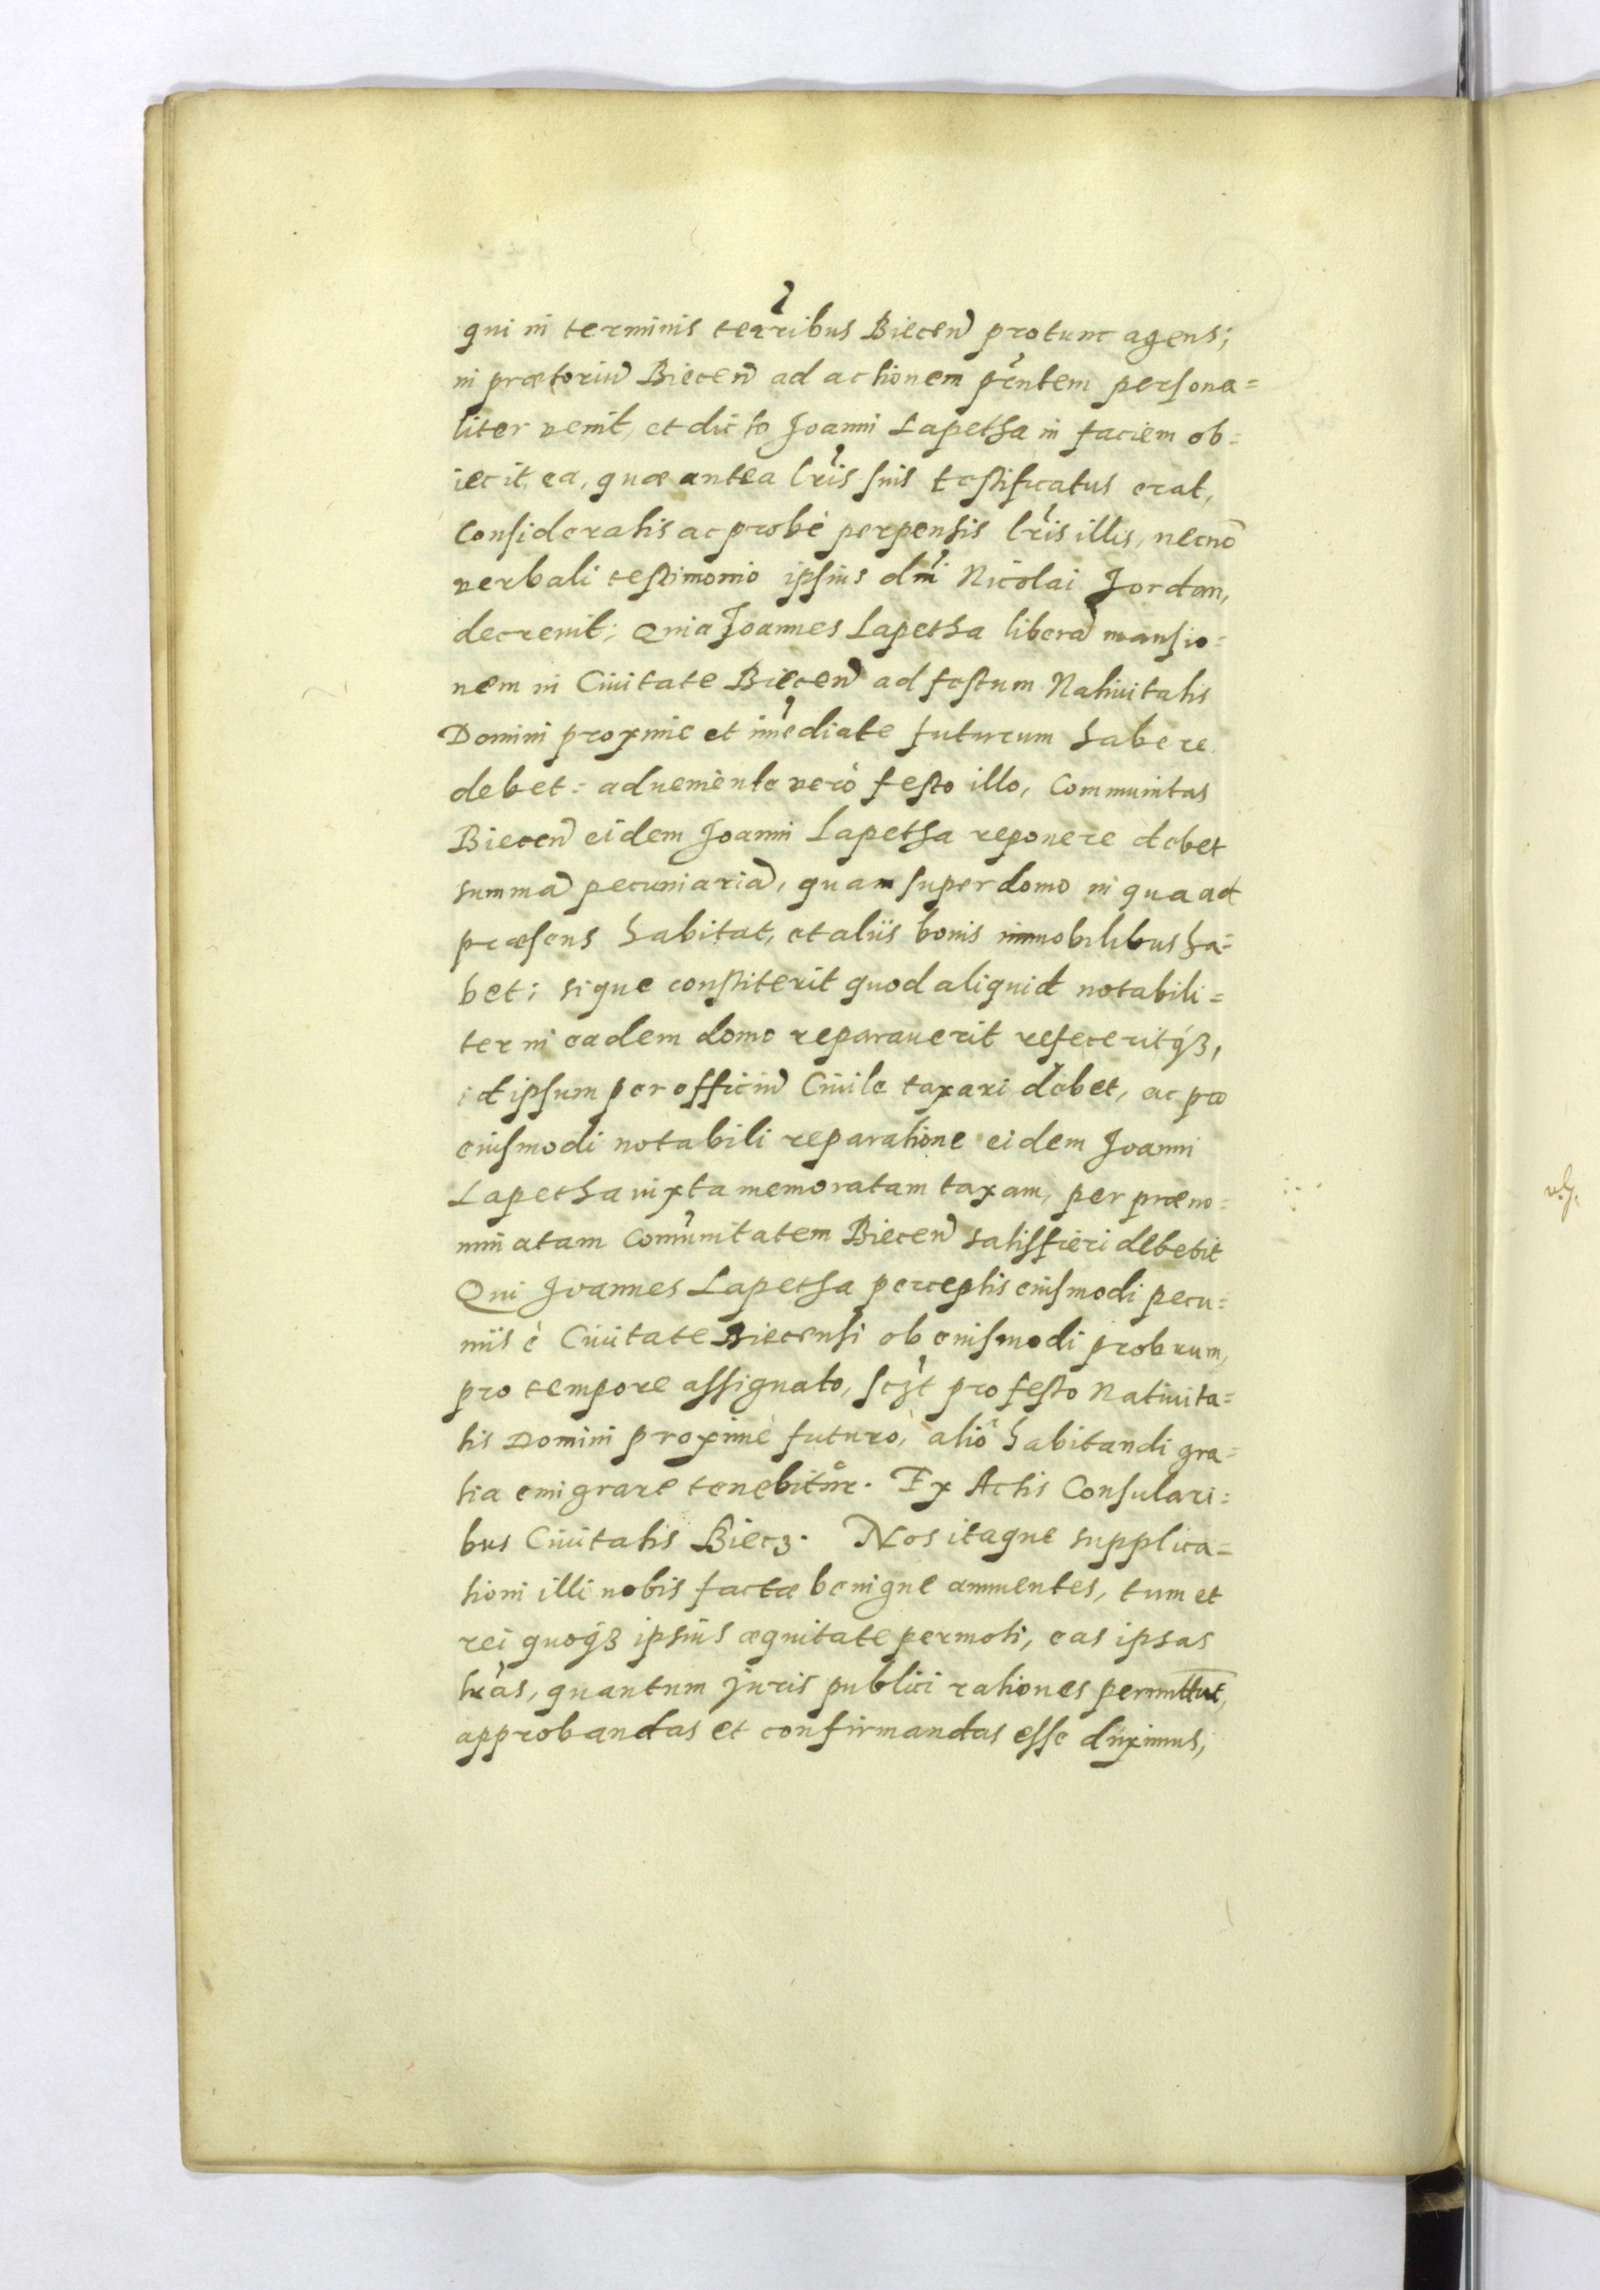 qui in terminis terribus Biecen protunc agens;
in prætoriu Biecen ad actionem prntem persona=
liter venit, et dicto Joanni Lapetha in faciem ob=
iecit ea, quæ antea lris suis testificatus erat,
Consideratis ac probè perpensis lris illis, necnō
verbali testimonio ipsius dni Nicolai Jordan,
decrevit; Quia Joannes Lapetha libera mansio=
nem in Ciuitate Biecen ad festum Natiuitatis
Domini proxime et imediate futurum habere
debet: adueniente verò festo illo, Communitas
Biecen eidem Joanni Lapetha reponere debet
summa pecuniaria, quam super domo in qua ad
præsens habitat, et aliis bonis immobilibus ha=
bet; sique constiterit quod aliquid notabili=
ter in eadem domo reparauerit refeceritq́ʒ,
id ipsum per officiu Ciuile taxari debet, ac pro
eiusmodi notabili reparatione eidem Joanni
Lapetha iuxta memoratam taxam, per præno=
minatam Comunitatem Biecen satisfieri debebit
Qui Joannes Lapetha perceptis eiusmodi pecu=
niis è Ciuitate Biecensi ob eiusmodi probrum,
pro tempore assignato, sczt pro festo Natiuita=
tis Domini proximè futuro, aliò habitandi gra=
tia emigrare tenebitur. Ex Actis Consulari=
bus Ciuitatis Biecz. Nos itaque supplica=
tioni illi nobis factæ benigne annuentes, tum et
rei quoq́ʒ ipsius æquitate permoti, eas ipsas
lras, quantum juris publici rationes permittut,
approbandas et confirmandas esse duximus,